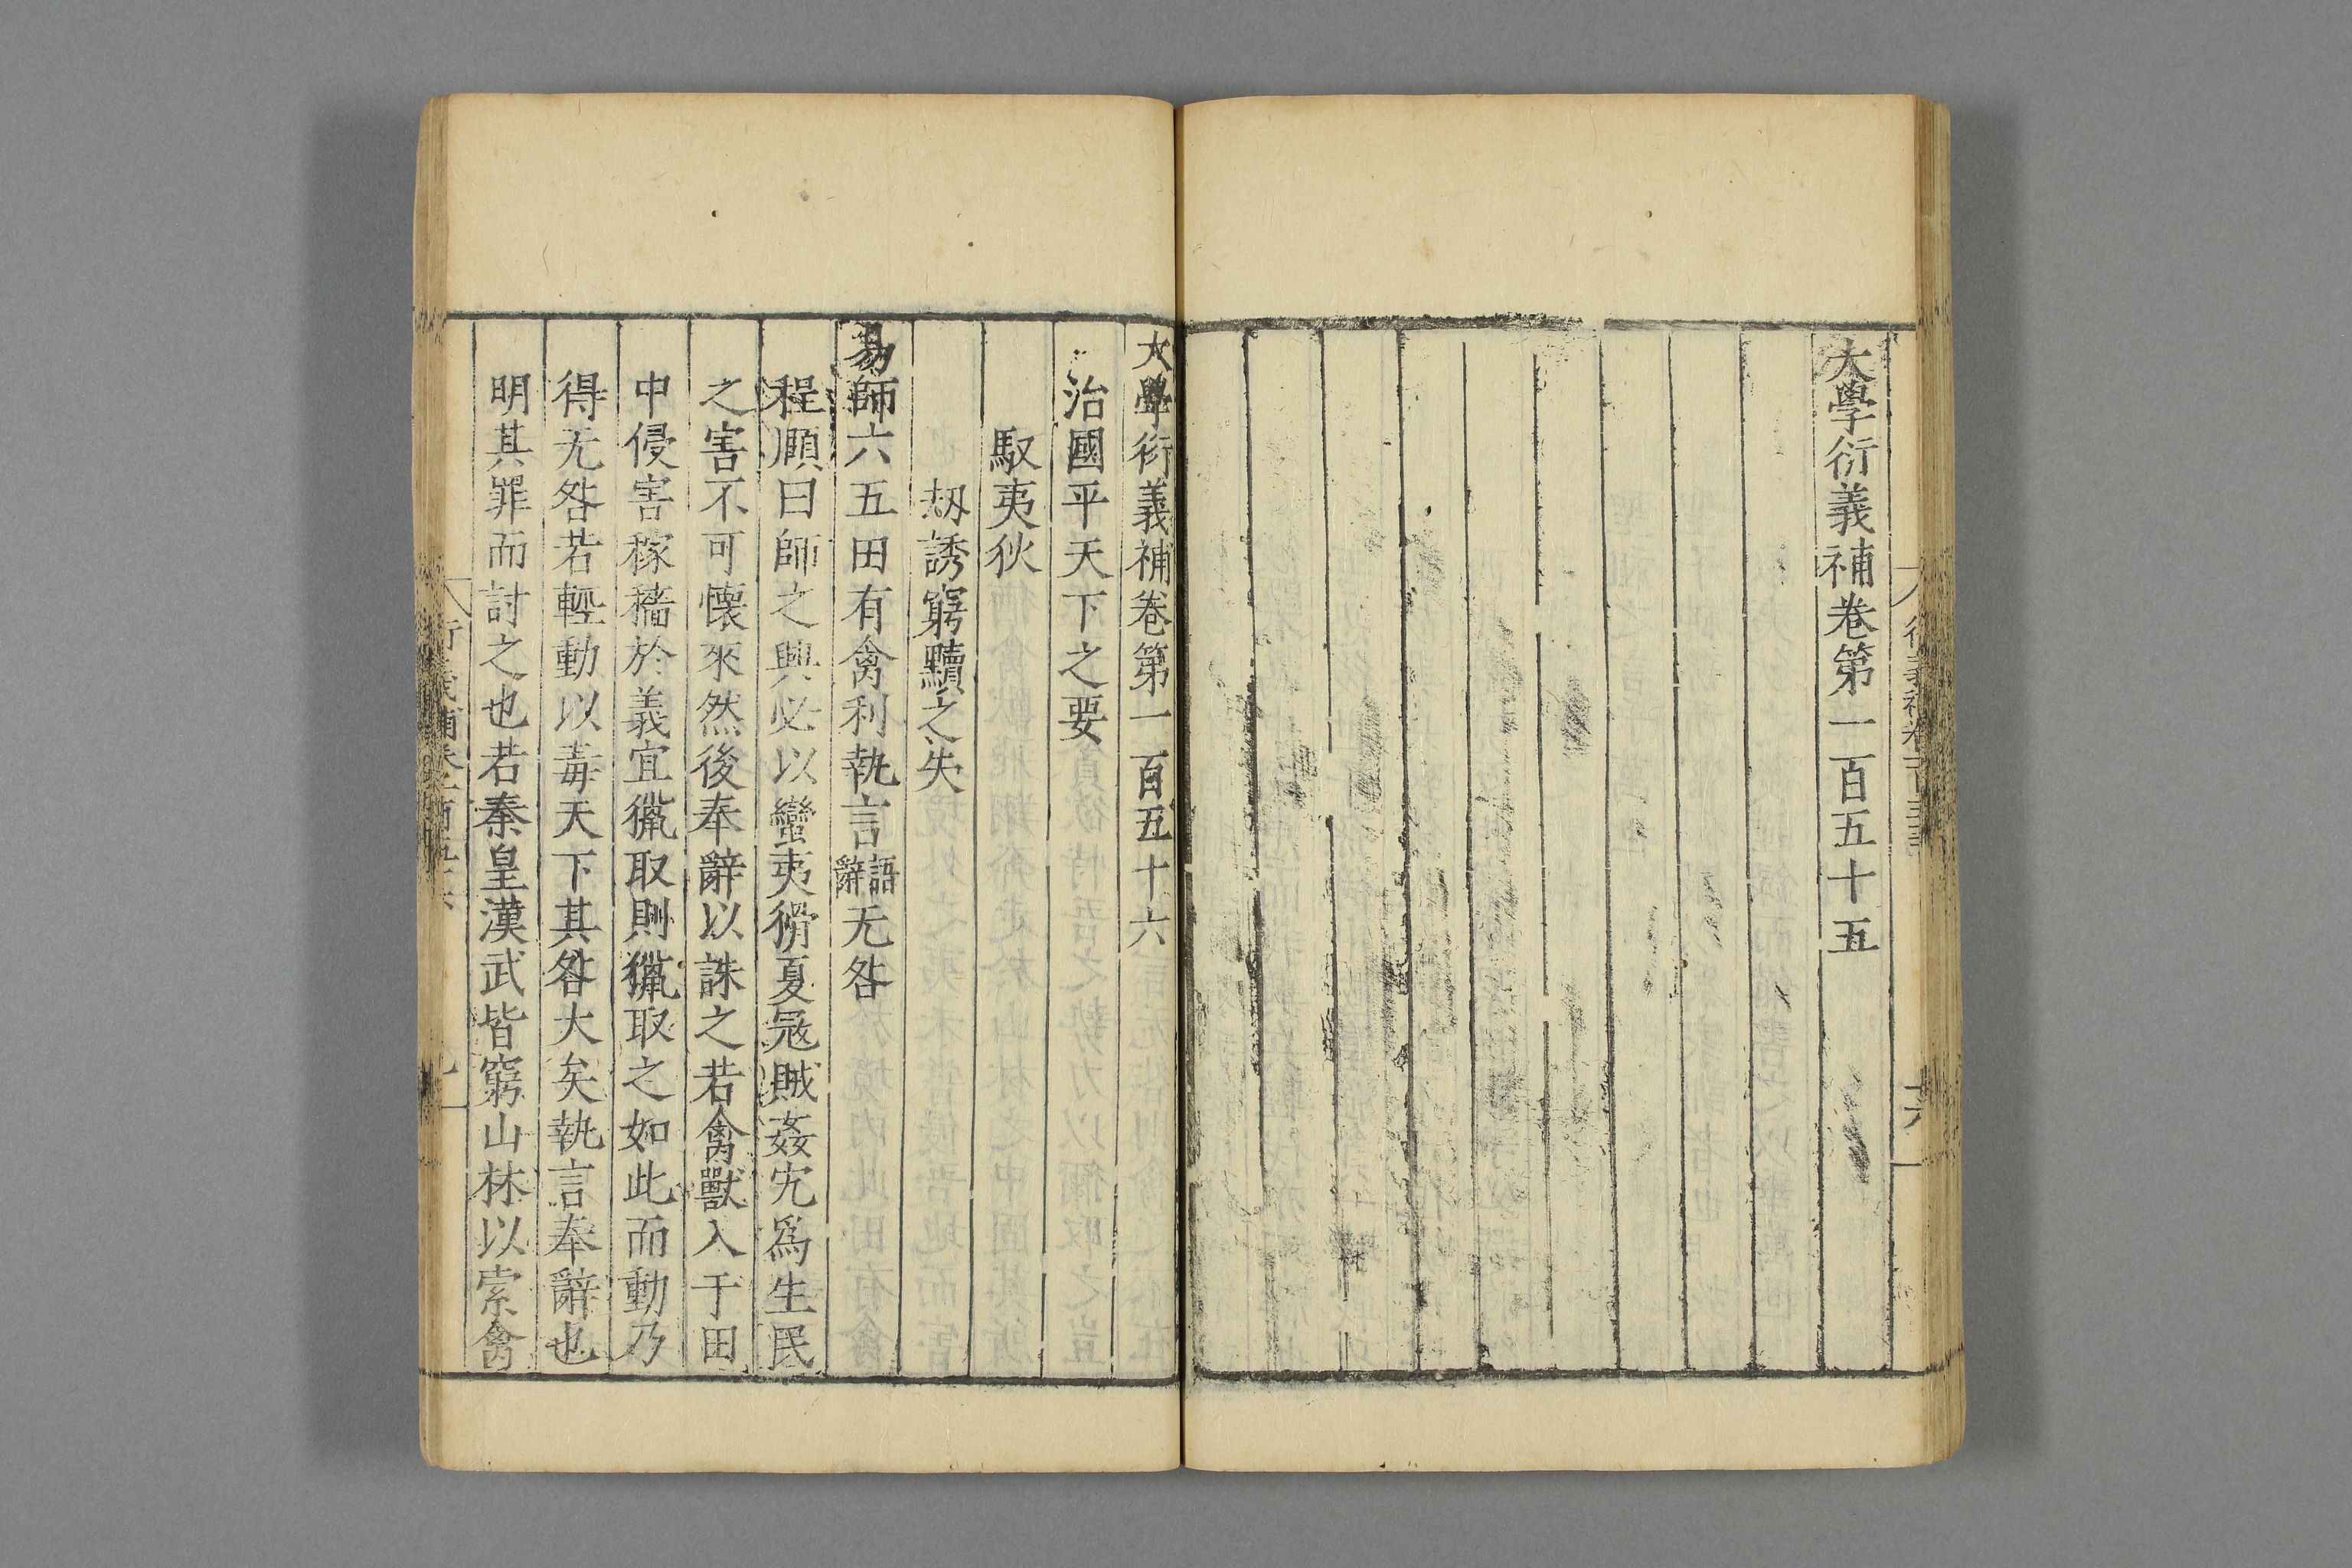 大學衍義補卷第一百五十五
大學衍義補卷第一百五十六
治國平天下之要
馭夷狄
刼誘窮黷之失
易師六五田有禽利執言語辭无咎
程頤曰師之興必以蠻夷猾夏寇賊姦宄爲生民
之害不可懷來然後奉辭以誅之若禽獸入于田
中侵害稼穡於義宜獵取則獵取之如此而動乃
得无咎若輕動以毒天下其咎大矣執言奉辭也
明其罪而討之也若秦皇漢武皆窮山林以索禽